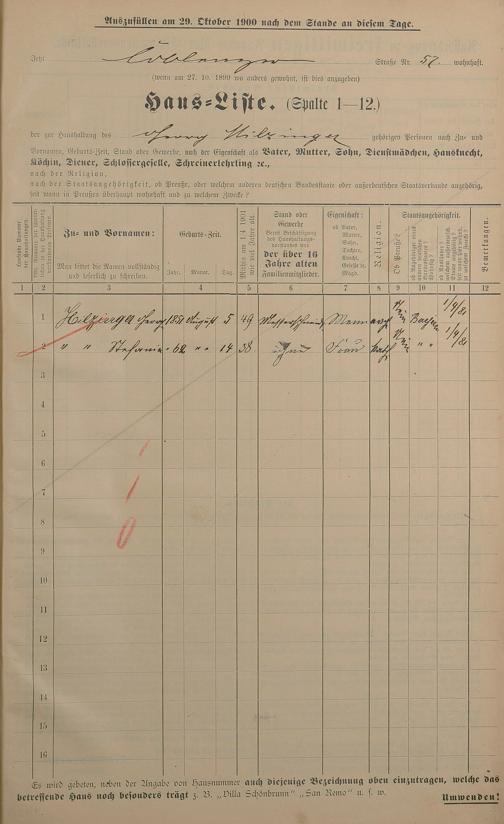 Auszufüllen am 29. Oktober 1900 nach dem Stande an diesem Tage.
Jetzt Coblenzer Straße Nr. 57 wohnhaft.
(wenn am 27. 10. 1899 wo anders gewohnt, ist dies anzugeben)
Haus-Liste. (Spalte 1—12.)
der zur Haushaltung des Georg Hilzinger gehörigen Personen nach Zu- und
Vornamen, Geburts-Zeit, Stand oder Gewerbe, nach der Eigenschaft als Vater, Mutter, Sohn, Dienstmädchen, Hausknecht,
Köchin, Diener, Schlossergeselle, Schreinerlehrling ꝛc.,
nach der Religion,
nach der Staatsangehörigkeit, ob Preuße, oder welchem anderen deutschen Bundesstaate oder außerdeutschen Staatsverbande angehörig,
seit wann in Preußen überhaupt wohnhaft und zu welchem Zwecke?
Zu- und Vornamen:
Man bittet die Namen vollständig und leserlich zu schreiben.
Geburts-Zeit.
Jahr. Monat. Tag.
Stand oder Gewerbe
der über 16 Jahre alten Familienmitglieder.
Eigenschaft:
ob Vater, Mutter, Sohn, Tochter, Knecht, Geselle, Magd.
Religion.
Ob Preuße?
Staatsangehörigkeit.
Bemerkungen.
1 2 3 4 5 6 7 8 9 10 11 12
1 Hilzinger Georg 1851 August 5 49 Mann
2 " " Stefanie 62 " " 14 38 ohne Frau kath " "
3
4
5
6
7
8
9
10
11
12
13
14
15
16
Es wird gebeten, neben der Angabe von Hausnummer auch diejenige Bezeichnung oben einzutragen, welche das
betreffende Haus noch besonders trägt z. B. „Villa Schönbrunn" „San Remo" u. s. w.
Umwenden!